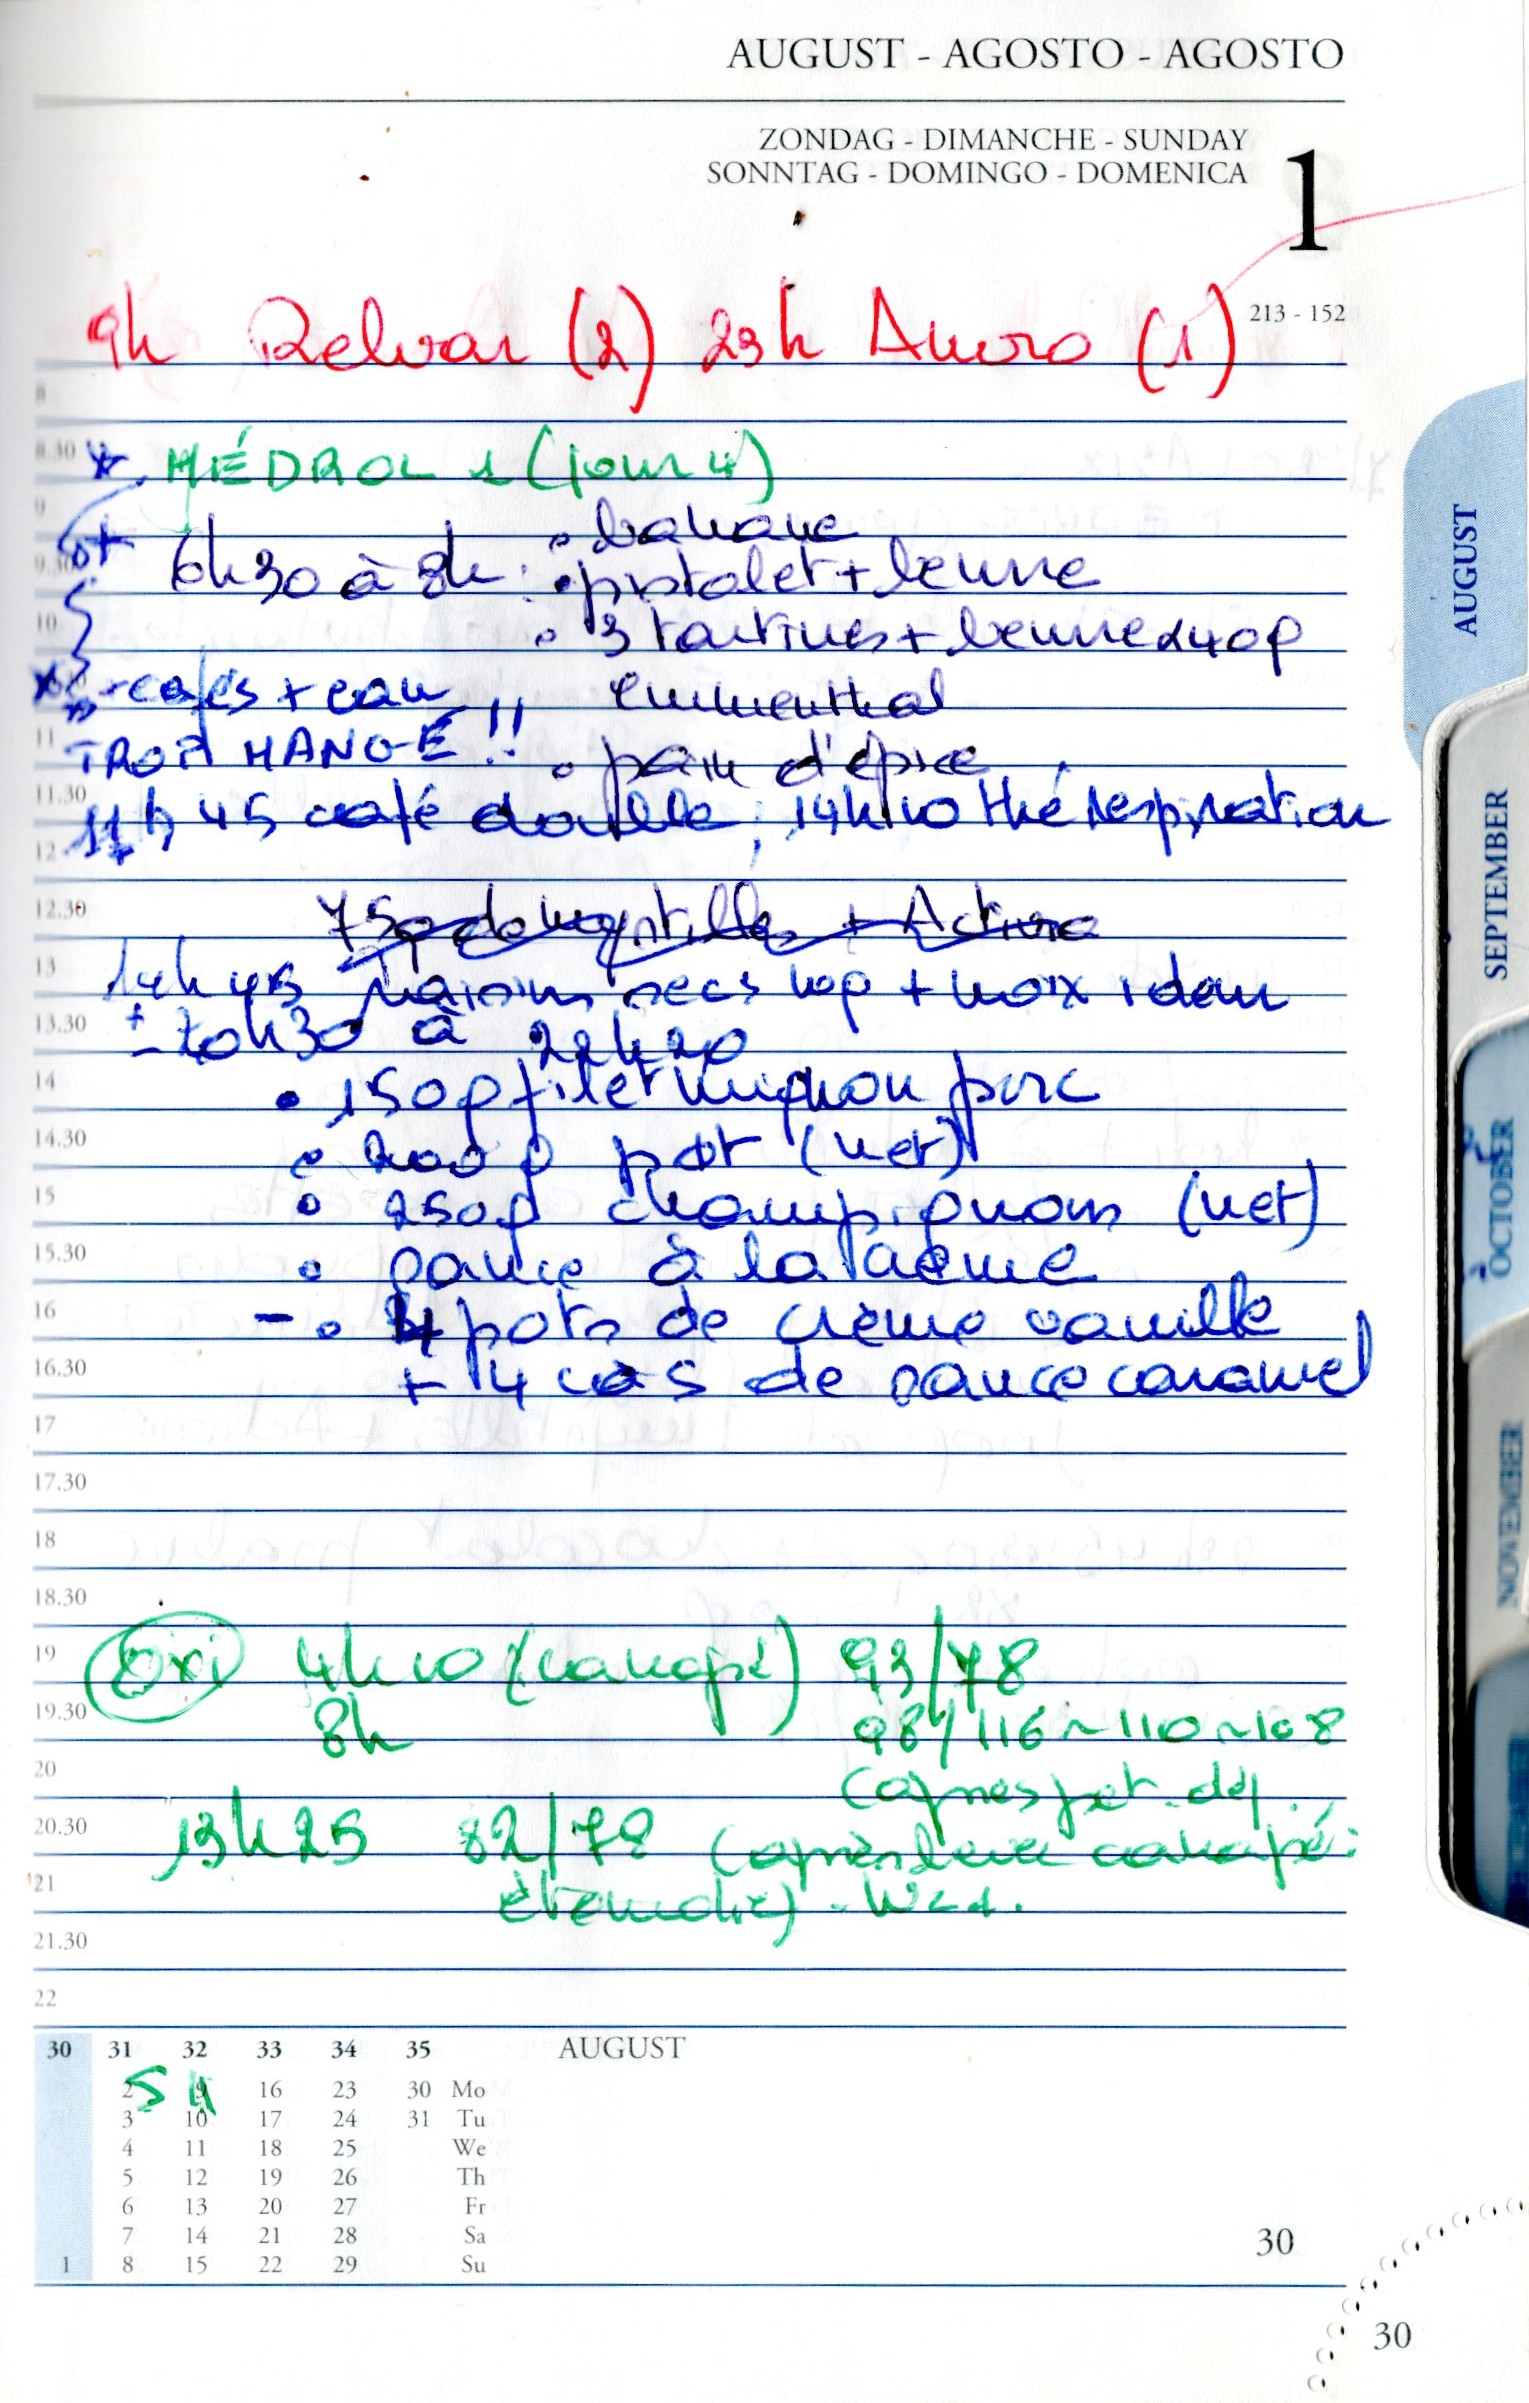 AUGUST - AGOSTO - AGOSTO
ZONDAG - DIMANCHE - SUNDAY
SONNTAG - DOMINGO - DOMENICA
1
213 - 152
9h Relvar (2) 23h Anoro (1)
8
8.30 MÉDROL 1 (jour 4)
9 • banane
9.30 6h30 à 8h : • pistolet + beurre
10 • 3 tartines + beurre 240g
cafés + eau emmenthal
11 TROP MANGÉ !! • pain d'épice
11.30 11h45 café double ; 14h10 thé respiration
12
12.30 75g de myrtilles + Activia
13 14h45 raisins secs 10g + noix + eau
13.30 ± 20h30 à 22h20
14 • 150g filet mignon porc
14.30 • 200g pdt (net)
15 • 250g champignons (net)
15.30 • sauce à la crème
16 - • 4 pots de crème vanille
16.30 + 4 càs de sauce caramel
17
17.30
18
18.30
19 Oxi 4h10 (canapé) 93/78
19.30 8h 98/116~110~108
20 (après pet. déj.
20.30 13h25 82/78 (après canapé :
21
21.30
22
30 31 32 33 34 35 AUGUST
5 4
2 9 16 23 30 Mo
3 10 17 24 31 Tu
4 11 18 25 We
5 12 19 26 Th
6 13 20 27 Fr
7 14 21 28 Sa
1 8 15 22 29 Su
30
30
AUGUST
SEPTEMBER
OCTOBER
NOVEMBER